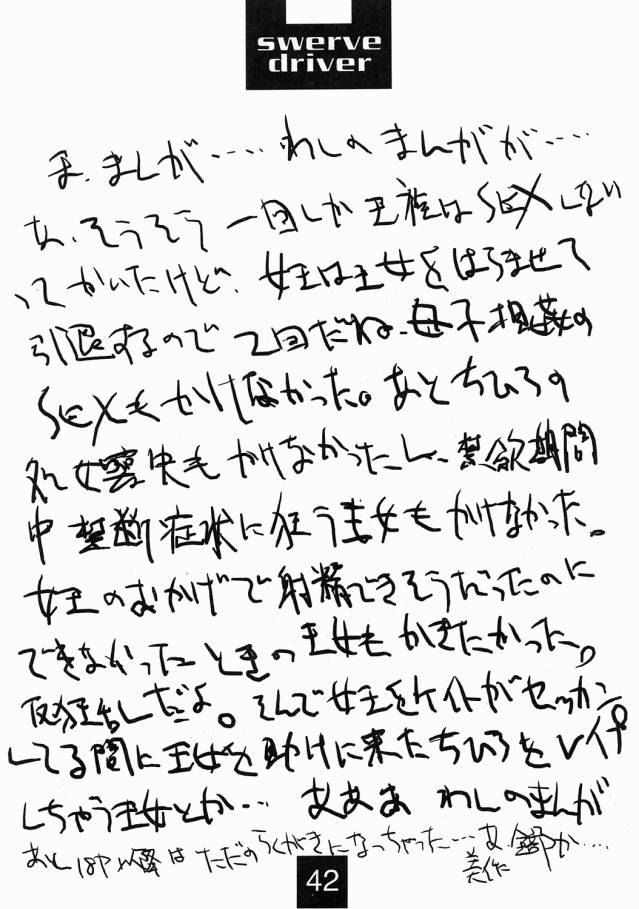 swerve
driver
ま、まんが‥‥わしのまんがが‥‥
あ、そうそう一回しか王族はSEXしない
ってかいたけど、女王は王女をはらませて
引退するので2回だね、母子相姦の
SEXもかけなかった。あとちひろの
処女喪失もかけなかったし、禁欲期間
中禁断症状に狂う王女もかけなかった。
女王のおかげで射精できそうだったのに
できなかったときの王女もかきたかった。
だよ。そんで女王をケイトがセッカン
してる間に王女を助けに来たちひろをレイプ
しちゃう王女とか… あああ わしのまんが
あと 以降はただのらくがきになっちゃった…あ、
42